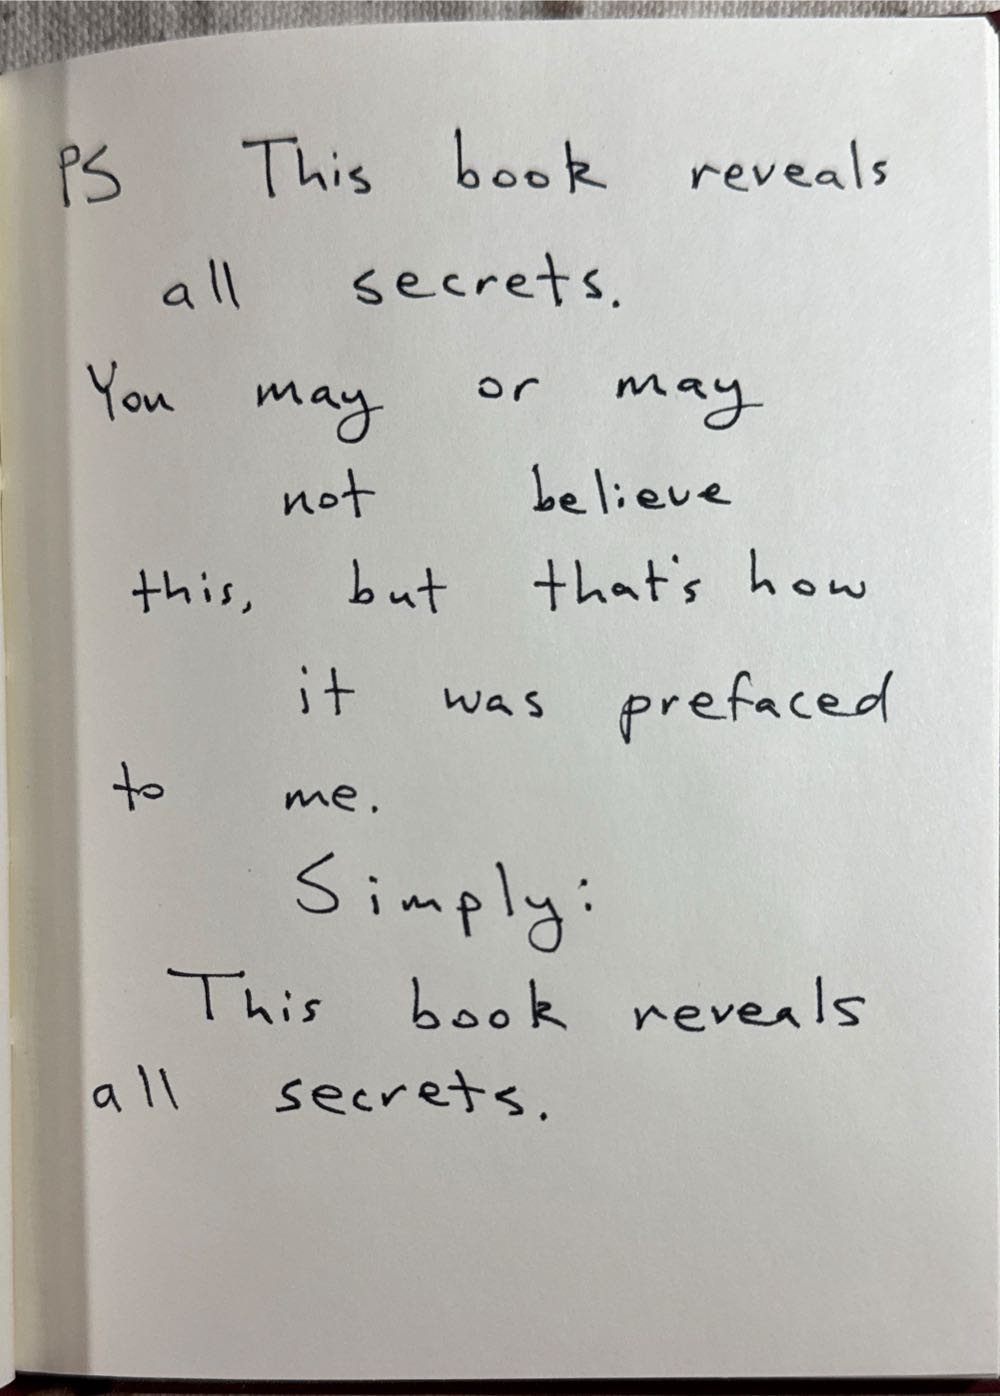 PS This book reveals
all secrets.
You may or may
not believe
this, but that's how
it was prefaced
to me.
Simply:
This book reveals
all secrets.